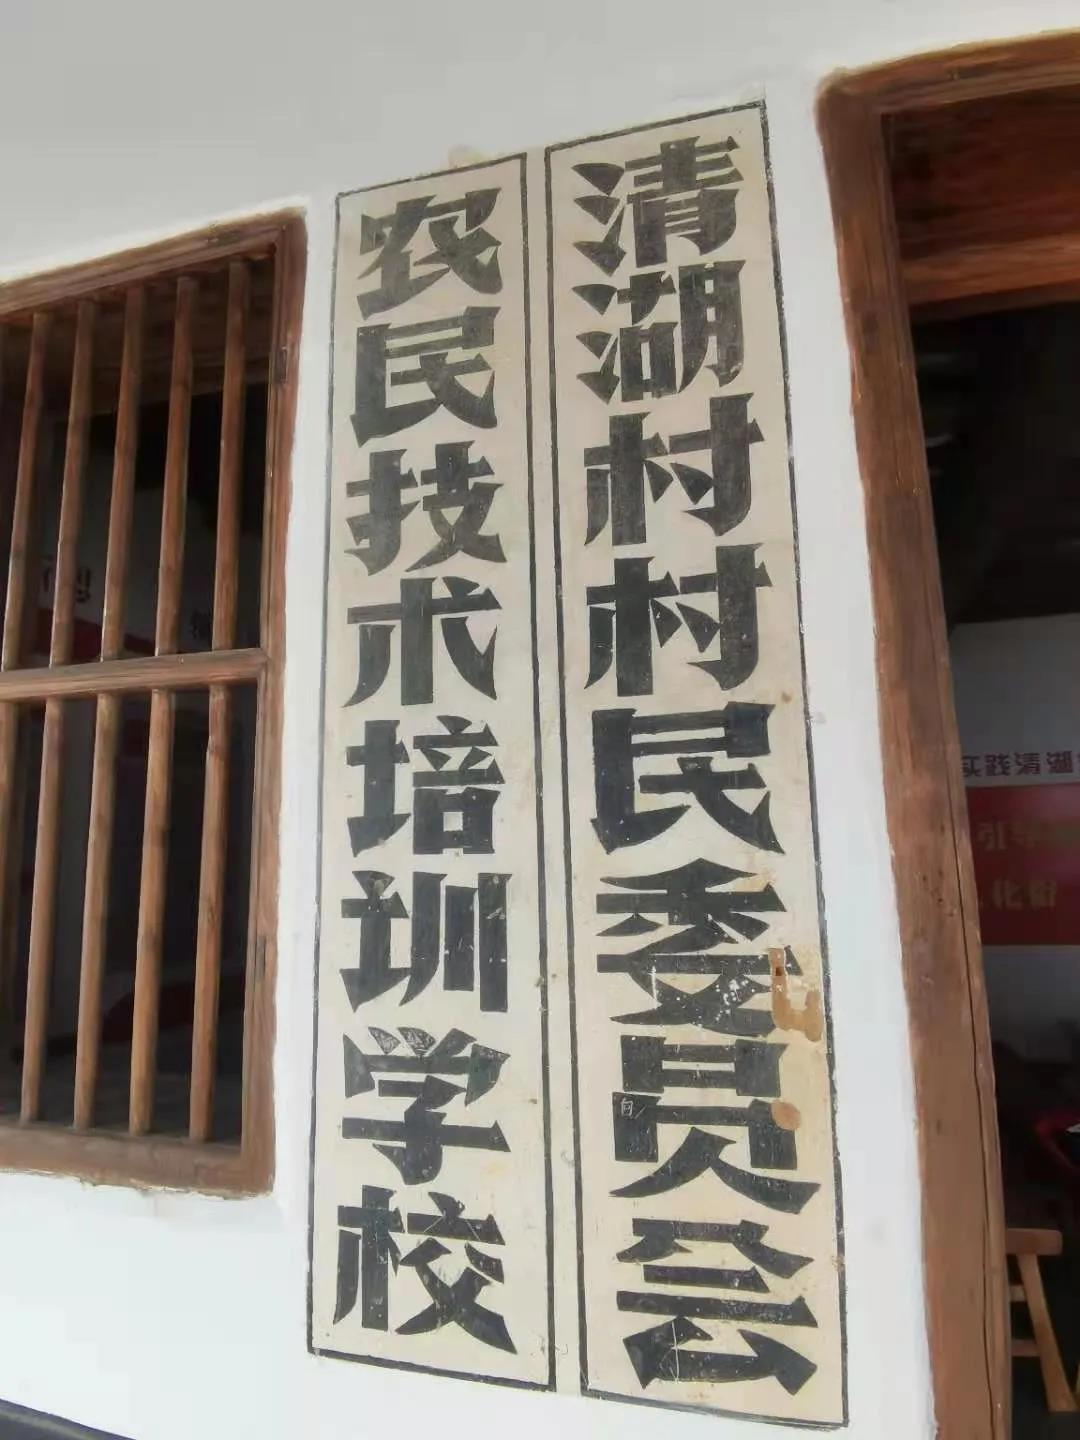 清湖村村民委员会
农民技术培训学校
实践清湖
引导
化